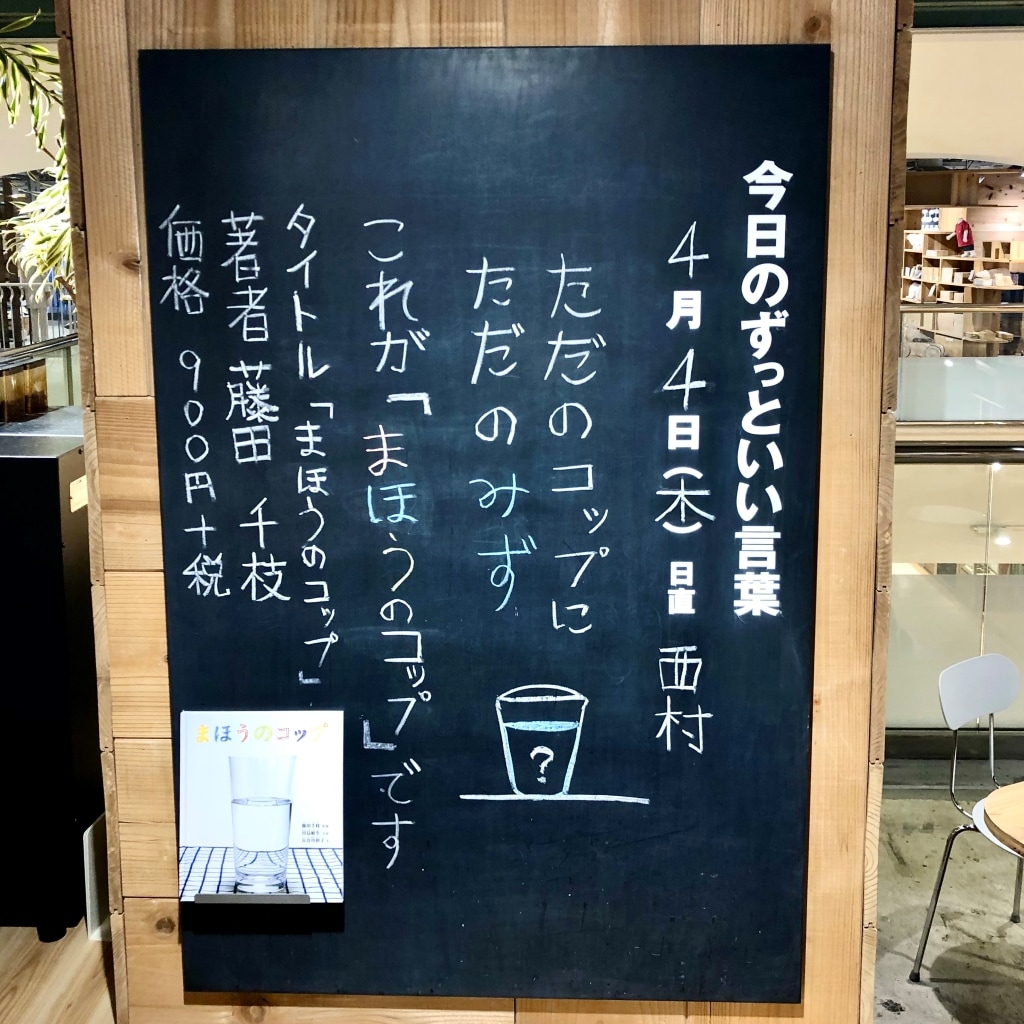 今日のずっといい言葉
4月4日(木) 日直 西村
ただのコップに
ただのみず
?
これが「まほうのコップ」です
タイトル「まほうのコップ」
著者 藤田 千枝
価格 900円+税
まほうのコップ